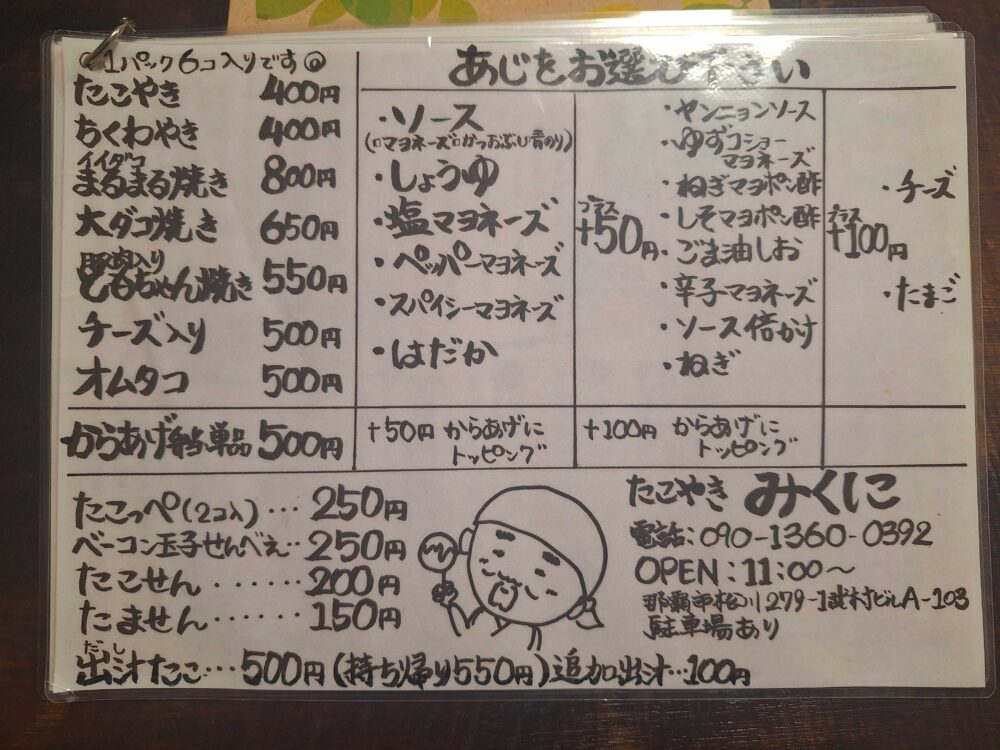 1パック6コ入りです
たこやき 400円
ちくわやき 400円
イイダコ
まるまる焼き 800円
大ダコ焼き 650円
豚肉入り
ともちゃん焼き 550円
チーズ入り 500円
オムタコ 500円
からあげ弁当単品 500円
あじをお選び下さい
・ソース
(マヨネーズかつおぶし青のり)
・しょうゆ
・塩マヨネーズ
・ペッパーマヨネーズ
・スパイシーマヨネーズ
・はだか
プラス
+50円
・ヤンニョンソース
・ゆずコショー
マヨネーズ
・ねぎマヨポン酢
・しそマヨポン酢
・ごま油しお
・辛子マヨネーズ
・ソース倍がけ
・ねぎ
プラス
+100円
・チーズ
・たまご
+50円 からあげに
トッピング
+100円 からあげに
トッピング
たこっぺ(2コ入)… 250円
ベーコン玉子せんべえ‥250円
たこせん‥‥‥‥200円
たません‥‥‥‥150円
だし
出汁たこ…500円(持ち帰り550円)追加出汁‥100円
たこやき みくに
電話:090-1360-0392
OPEN:11:00〜
那覇市松川279-1武村ビルA-103
駐車場あり